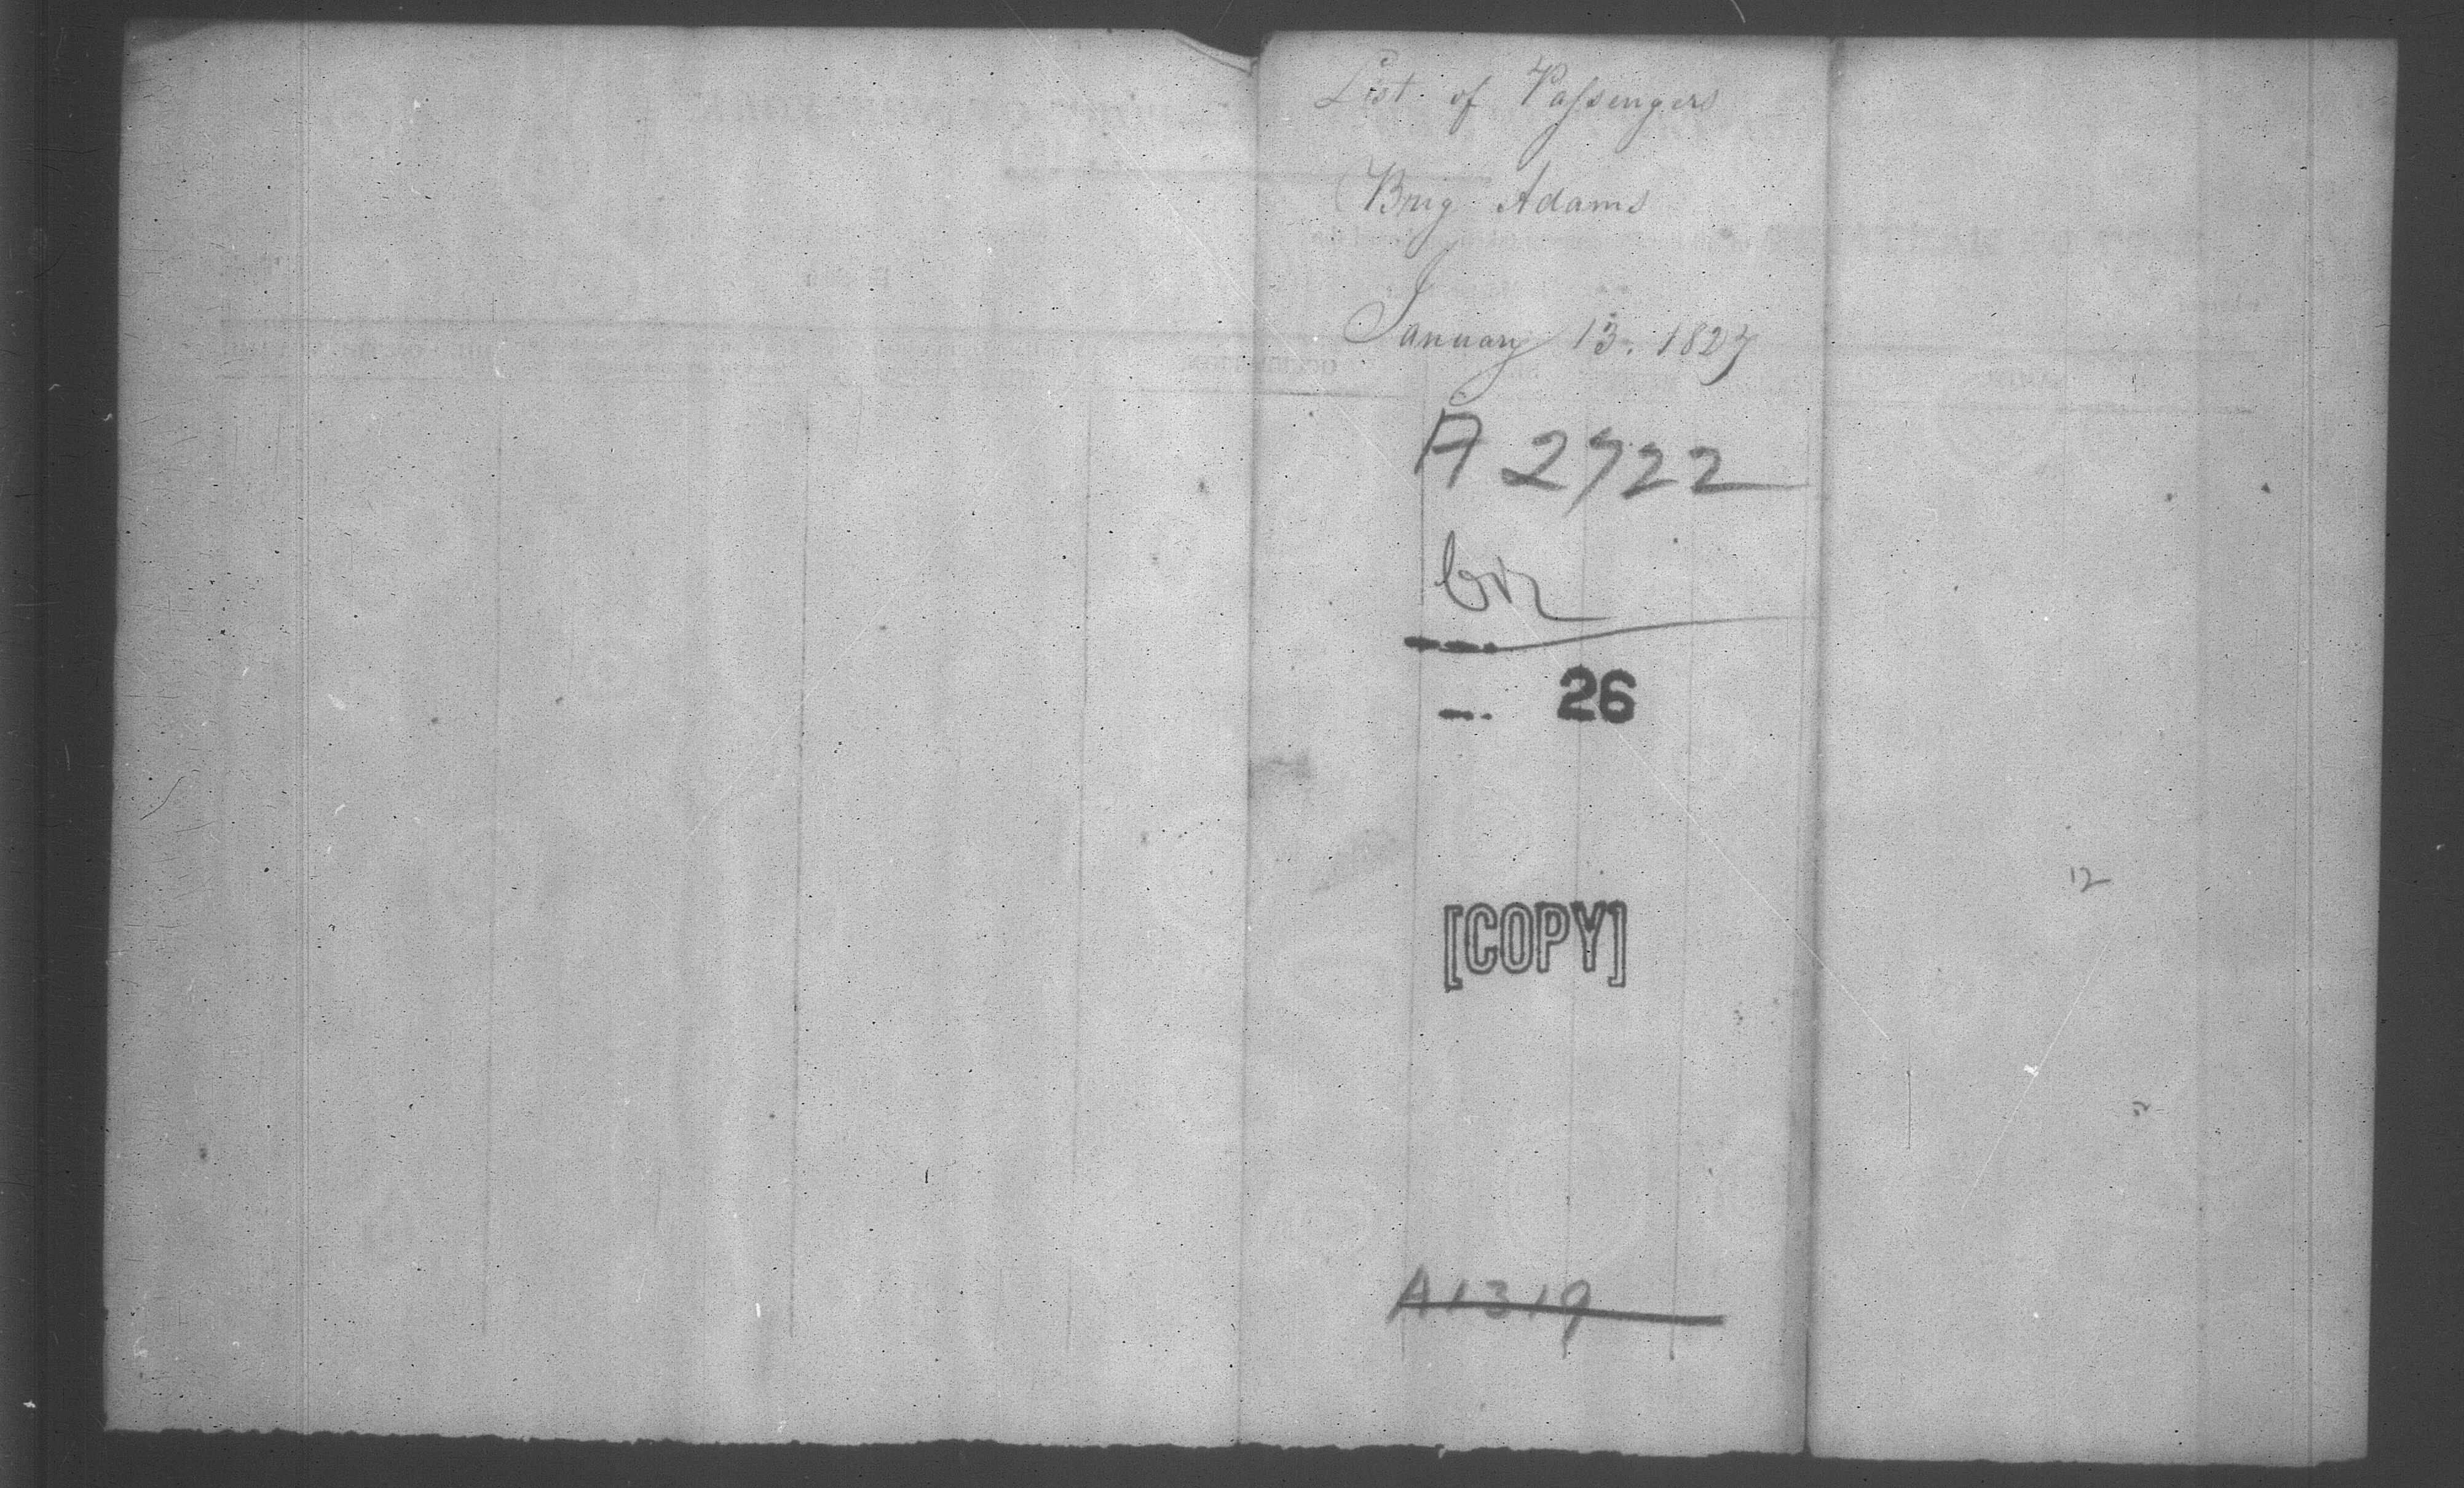 List of Passengers
Brig Adams
January 13. 1827
A 2722
26
[COPY]
A1319
12